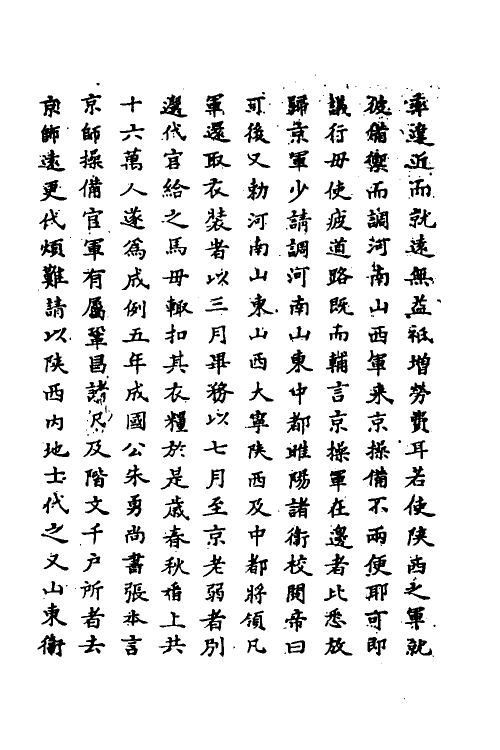 率違近而就遠無益祗增勞費耳若使陜西之軍就
彼備禦而調河南山西軍来京操備不兩便耶可即
議行毋使疲道路既而輔言京操軍在邊者比悉放
歸京軍少請調河南山東中都睢陽諸衞校閱帝曰
可後又勅河南山東山西大寧陜西及中都將領凡
軍還取衣裝者以三月畢務以七月至京老弱者别
選代官給之馬毋輒扣其衣糧於是歲春秋番上共
十六萬人遂為成例五年成國公朱勇尚書張本言
京師操備官軍有屬鞏昌諸及階文千户所者去
京師逺更代煩難請以陜西内地士代之又山東衞